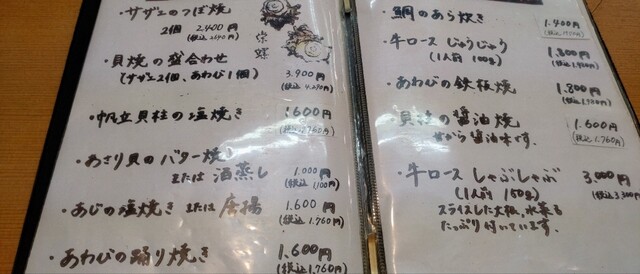 ・サザエのつぼ焼
2個 2.400円
(税込 2640円)
栄螺
・貝焼の盛合わせ
(サザエ2個、あわび1個) 3.900円
(税込 4.290円)
・帆立貝柱の塩焼き 1600円
(税込1.760円)
・あさり貝のバター焼
または 酒蒸し 1.000円
(税込 1100円)
・あじの塩焼き または 唐揚 1.600円
(税込 1.760円)
・あわびの踊り焼き 1.600円
(税込1.760円)
・鯛のあら炊き 1.400円
・牛ロース じゅうじゅう 1.800円
(1人前 100g) (税込1.980円)
・あわびの鉄板焼 1.800円
(税込1.980円)
貝柱の醤油焼 1.600円
甘から醤油味です。 (税込1.760円)
・牛ロース しゃぶしゃぶ 3.000円
(1人前 150g) (税込3.300円)
スライスした大根、水菜も
たっぷり付いています。